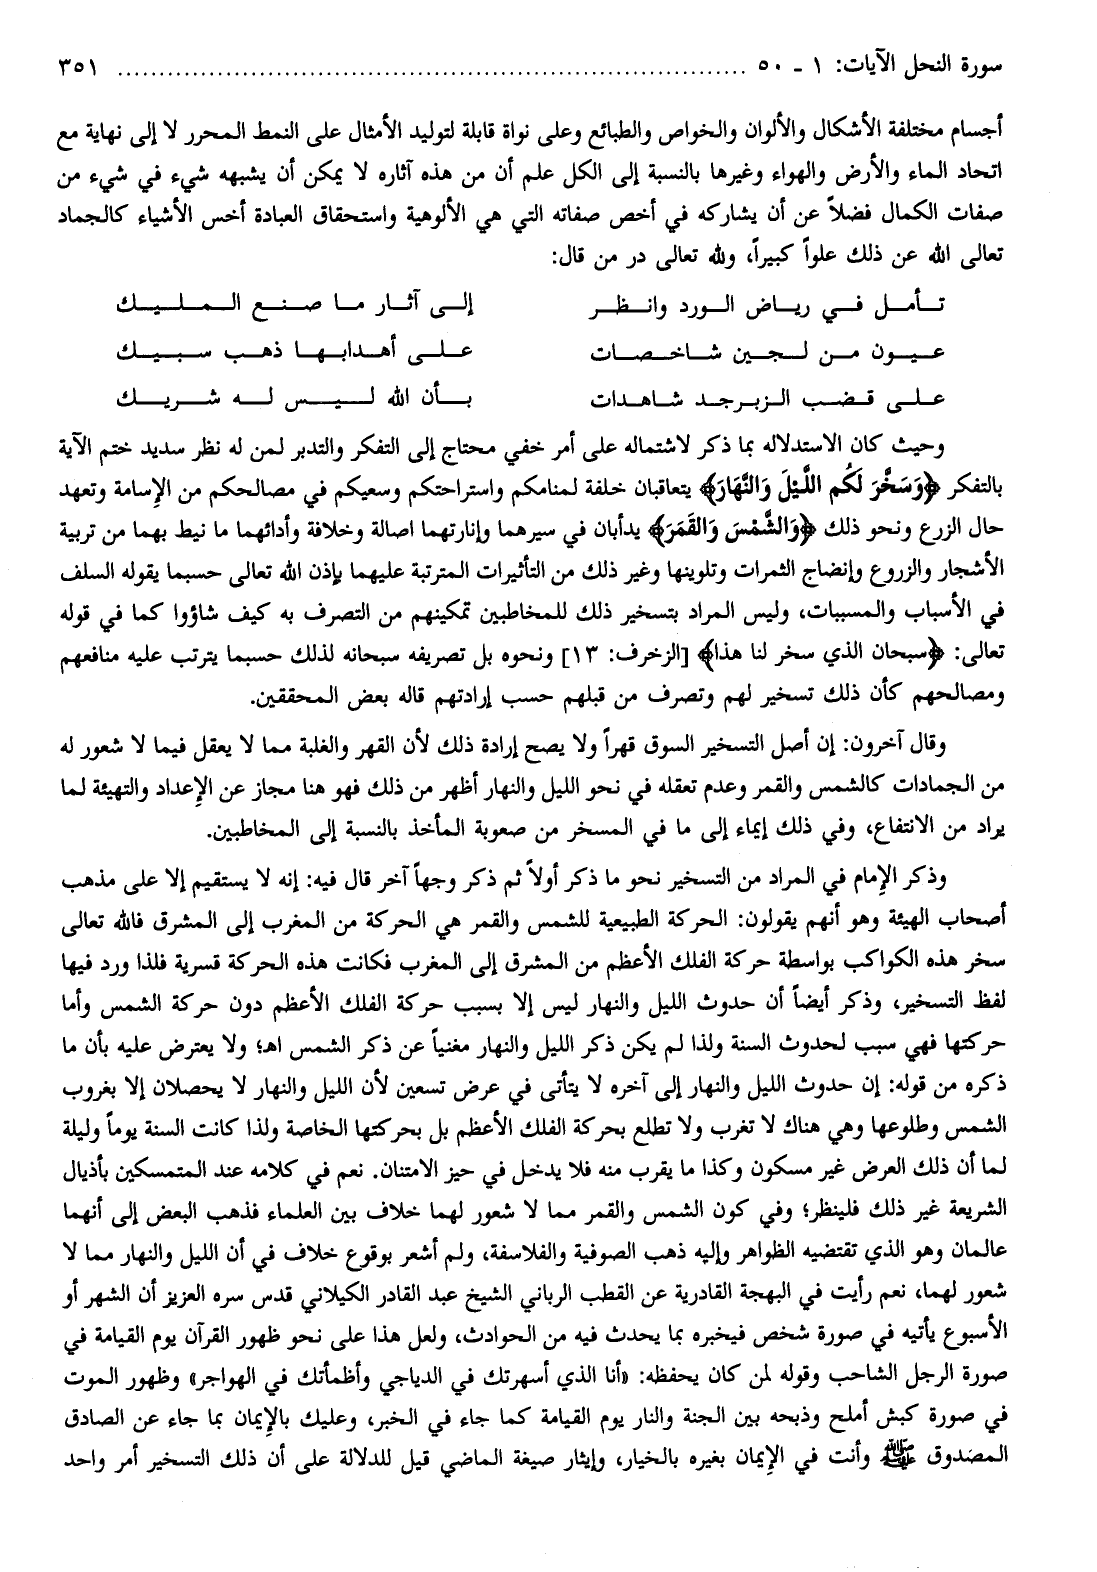 سورة النحل الآيات: ١ ـ ٥٠ ........................................................................... ٣٥١
أجسام مختلفة الأشكال والألوان والخواص والطبائع وعلى نواة قابلة لتوليد الأمثال على النمط المحرر لا إلى نهاية مع
اتحاد الماء والأرض والهواء وغيرها بالنسبة إلى الكل علم أن من هذه آثاره لا يمكن أن يشبهه شيء في شيء من
صفات الكمال فضلاً عن أن يشاركه في أخص صفاته التي هي الألوهية واستحقاق العبادة أخس الأشياء كالجماد
تعالى الله عن ذلك علواً كبيراً، ولله تعالى در من قال:
تأمل في رياض الورد وانظر إلى آثار ما صنع المليك
عيون من لجين شاخصات على أهدابها ذهب سبيك
على قضب الزبرجد شاهدات بأن الله ليس له شريك
وحيث كان الاستدلاله بما ذكر لاشتماله على أمر خفي محتاج إلى التفكر والتدبر لمن له نظر سديد ختم الآية
بالتفكر ﴿وَسَخَّرَ لَكُم اللَّيْلَ وَالنَّهَارَ﴾ يتعاقبان خلفة لمنامكم واستراحتكم وسعيكم في مصالحكم من الإسامة وتعهد
حال الزرع ونحو ذلك ﴿وَالشَّمْسَ وَالقَمَرَ﴾ يدأبان في سيرهما وإنارتهما اصالة وخلافة وأدائهما ما نيط بهما من تربية
الأشجار والزروع وإنضاج الثمرات وتلوينها وغير ذلك من التأثيرات المترتبة عليهما بإذن الله تعالى حسبما يقوله السلف
في الأسباب والمسببات، وليس المراد بتسخير ذلك للمخاطبين تمكينهم من التصرف به كيف شاؤوا كما في قوله
تعالى: ﴿سبحان الذي سخر لنا هذا﴾ [الزخرف: ١٣] ونحوه بل تصريفه سبحانه لذلك حسبما يترتب عليه منافعهم
ومصالحهم كأن ذلك تسخير لهم وتصرف من قبلهم حسب إرادتهم قاله بعض المحققين.
وقال آخرون: إن أصل التسخير السوق قهراً ولا يصح إرادة ذلك لأن القهر والغلبة مما لا يعقل فيما لا شعور له
من الجمادات كالشمس والقمر وعدم تعقله في نحو الليل والنهار أظهر من ذلك فهو هنا مجاز عن الإعداد والتهيئة لما
يراد من الانتفاع، وفي ذلك إيماء إلى ما في المسخر من صعوبة المأخذ بالنسبة إلى المخاطبين.
وذكر الإمام في المراد من التسخير نحو ما ذكر أولاً ثم ذكر وجهاً آخر قال فيه: إنه لا يستقيم إلا على مذهب
أصحاب الهيئة وهو أنهم يقولون: الحركة الطبيعية للشمس والقمر هي الحركة من المغرب إلى المشرق فالله تعالى
سخر هذه الكواكب بواسطة حركة الفلك الأعظم من المشرق إلى المغرب فكانت هذه الحركة قسرية فلذا ورد فيها
لفظ التسخير، وذكر أيضاً أن حدوث الليل والنهار ليس إلا بسبب حركة الفلك الأعظم دون حركة الشمس وأما
حركتها فهي سبب لحدوث السنة ولذا لم يكن ذكر الليل والنهار مغنياً عن ذكر الشمس اهـ؛ ولا يعترض عليه بأن ما
ذكره من قوله: إن حدوث الليل والنهار إلى آخره لا يتأتى في عرض تسعين لأن الليل والنهار لا يحصلان إلا بغروب
الشمس وطلوعها وهي هناك لا تغرب ولا تطلع بحركة الفلك الأعظم بل بحركتها الخاصة ولذا كانت السنة يوماً وليلة
لما أن ذلك العرض غير مسكون وكذا ما يقرب منه فلا يدخل في حيز الامتنان. نعم في كلامه عند المتمسكين بأذيال
الشريعة غير ذلك فلينظر؛ وفي كون الشمس والقمر مما لا شعور لهما خلاف بين العلماء فذهب البعض إلى أنهما
عالمان وهو الذي تقتضيه الظواهر وإليه ذهب الصوفية والفلاسفة، ولم أشعر بوقوع خلاف في أن الليل والنهار مما لا
شعور لهما، نعم رأيت في البهجة القادرية عن القطب الرباني الشيخ عبد القادر الكيلاني قدس سره العزيز أن الشهر أو
الأسبوع يأتيه في صورة شخص فيخبره بما يحدث فيه من الحوادث، ولعل هذا على نحو ظهور القرآن يوم القيامة في
صورة الرجل الشاحب وقوله لمن كان يحفظه: «أنا الذي أسهرتك في الدياجي وأظمأتك في الهواجر» وظهور الموت
في صورة كبش أملح وذبحه بين الجنة والنار يوم القيامة كما جاء في الخبر، وعليك بالإيمان بما جاء عن الصادق
المصدوق ﷺ وأنت في الإيمان بغيره بالخيار، وإيثار صيغة الماضي قيل للدلالة على أن ذلك التسخير أمر واحد